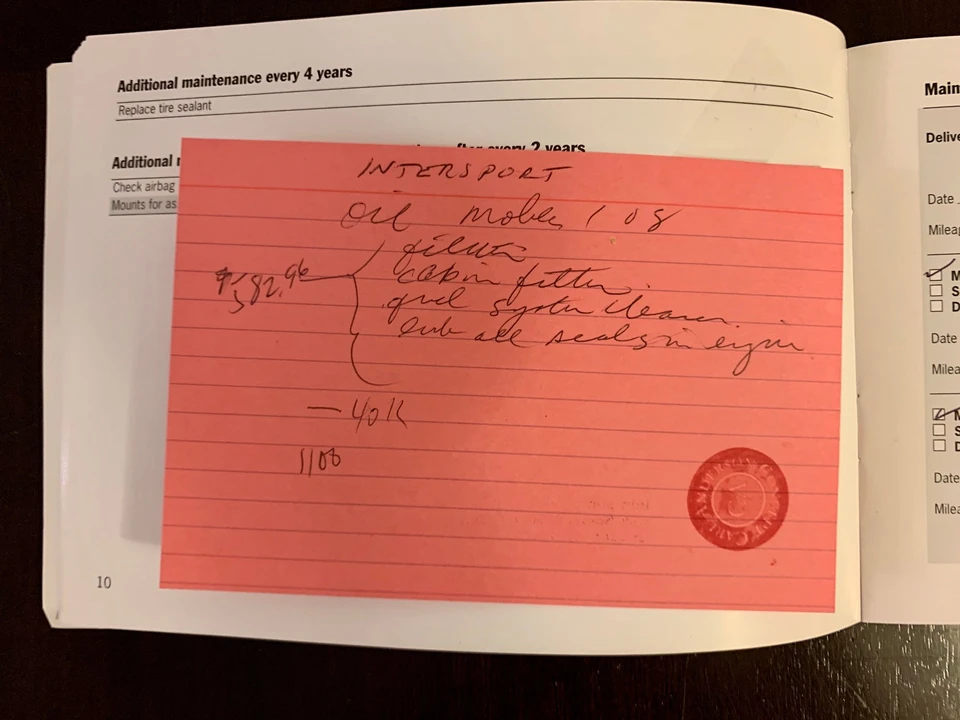 Additional maintenance every 4 years
Replace tire sealant
after every 2 years
Additional
Check airbag
Mounts for as
INTERSPORT
oil Mobil 1 08
filter
$582.96
cabin filter
fuel system cleaner
lube all seals in engine
— 40K
1100
10
Main
Delive
Date
Mileag
M
S
D
Date
Milea
M
S
D
Date
Milea